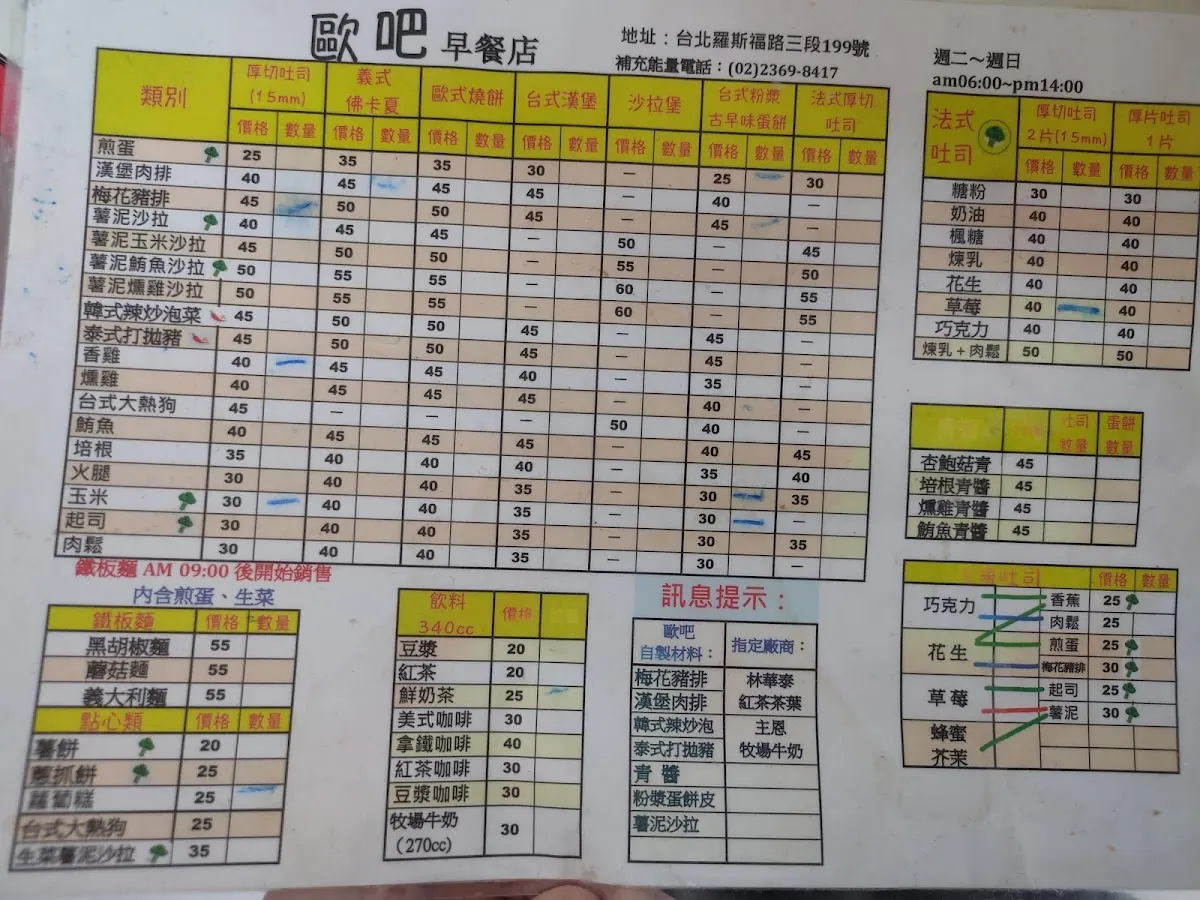 歐吧 早餐店
地址：台北羅斯福路三段199號
補充能量電話：(02)2369-8417
週二～週日
am06:00~pm14:00
類別 厚切吐司(15mm) 義式佛卡夏 歐式燒餅 台式漢堡 沙拉堡 台式粉漿古早味蛋餅 法式厚切吐司
價格 數量 價格 數量 價格 數量 價格 數量 價格 數量 價格 數量 價格 數量
煎蛋 25 35 35 30 — 25 30
漢堡肉排 40 45 45 45 — 40 —
梅花豬排 45 50 50 45 — 45 —
薯泥沙拉 40 45 45 — 50 — 45
薯泥玉米沙拉 45 50 50 — 55 — 50
薯泥鮪魚沙拉 50 55 55 — 60 — 55
薯泥燻雞沙拉 50 55 55 — 60 — 55
韓式辣炒泡菜 45 50 50 45 — 45 —
泰式打拋豬 45 50 50 45 — 45 —
香雞 40 45 45 40 — 35 —
燻雞 40 45 45 40 — 40 —
台式大熱狗 45 — — — 50 40 —
鮪魚 40 45 45 45 — 40 45
培根 35 40 40 40 — 35 40
火腿 30 40 40 35 — 30 35
玉米 30 40 40 35 — 30 —
起司 30 40 40 35 — 30 35
肉鬆 30 40 40 35 — 30
法式吐司 厚切吐司2片(15mm) 厚片吐司1片
價格 數量 價格 數量
糖粉 30 30
奶油 40 40
楓糖 40 40
煉乳 40 40
花生 40 40
草莓 40 40
巧克力 40 40
煉乳+肉鬆 50 50
吐司數量 蛋餅數量
杏鮑菇青 45
培根青醬 45
燻雞青醬 45
鮪魚青醬 45
吐司 價格 數量
巧克力
花生
草莓
蜂蜜
芥茉
香蕉 25
肉鬆 25
煎蛋 25
梅花豬排 30
起司 25
薯泥 30
鐵板麵 AM 09:00 後開始銷售
內含煎蛋、生菜
鐵板麵 價格 數量
黑胡椒麵 55
蘑菇麵 55
義大利麵 55
點心類 價格 數量
薯餅 20
蔥抓餅 25
蘿蔔糕 25
台式大熱狗 25
生菜薯泥沙拉 35
飲料340cc 價格
豆漿 20
紅茶 20
鮮奶茶 25
美式咖啡 30
拿鐵咖啡 40
紅茶咖啡 30
豆漿咖啡 30
牧場牛奶(270cc) 30
訊息提示：
歐吧自製材料： 指定廠商：
梅花豬排 林華泰
漢堡肉排 紅茶茶葉
韓式辣炒泡 主恩
泰式打拋豬 牧場牛奶
青醬
粉漿蛋餅皮
薯泥沙拉